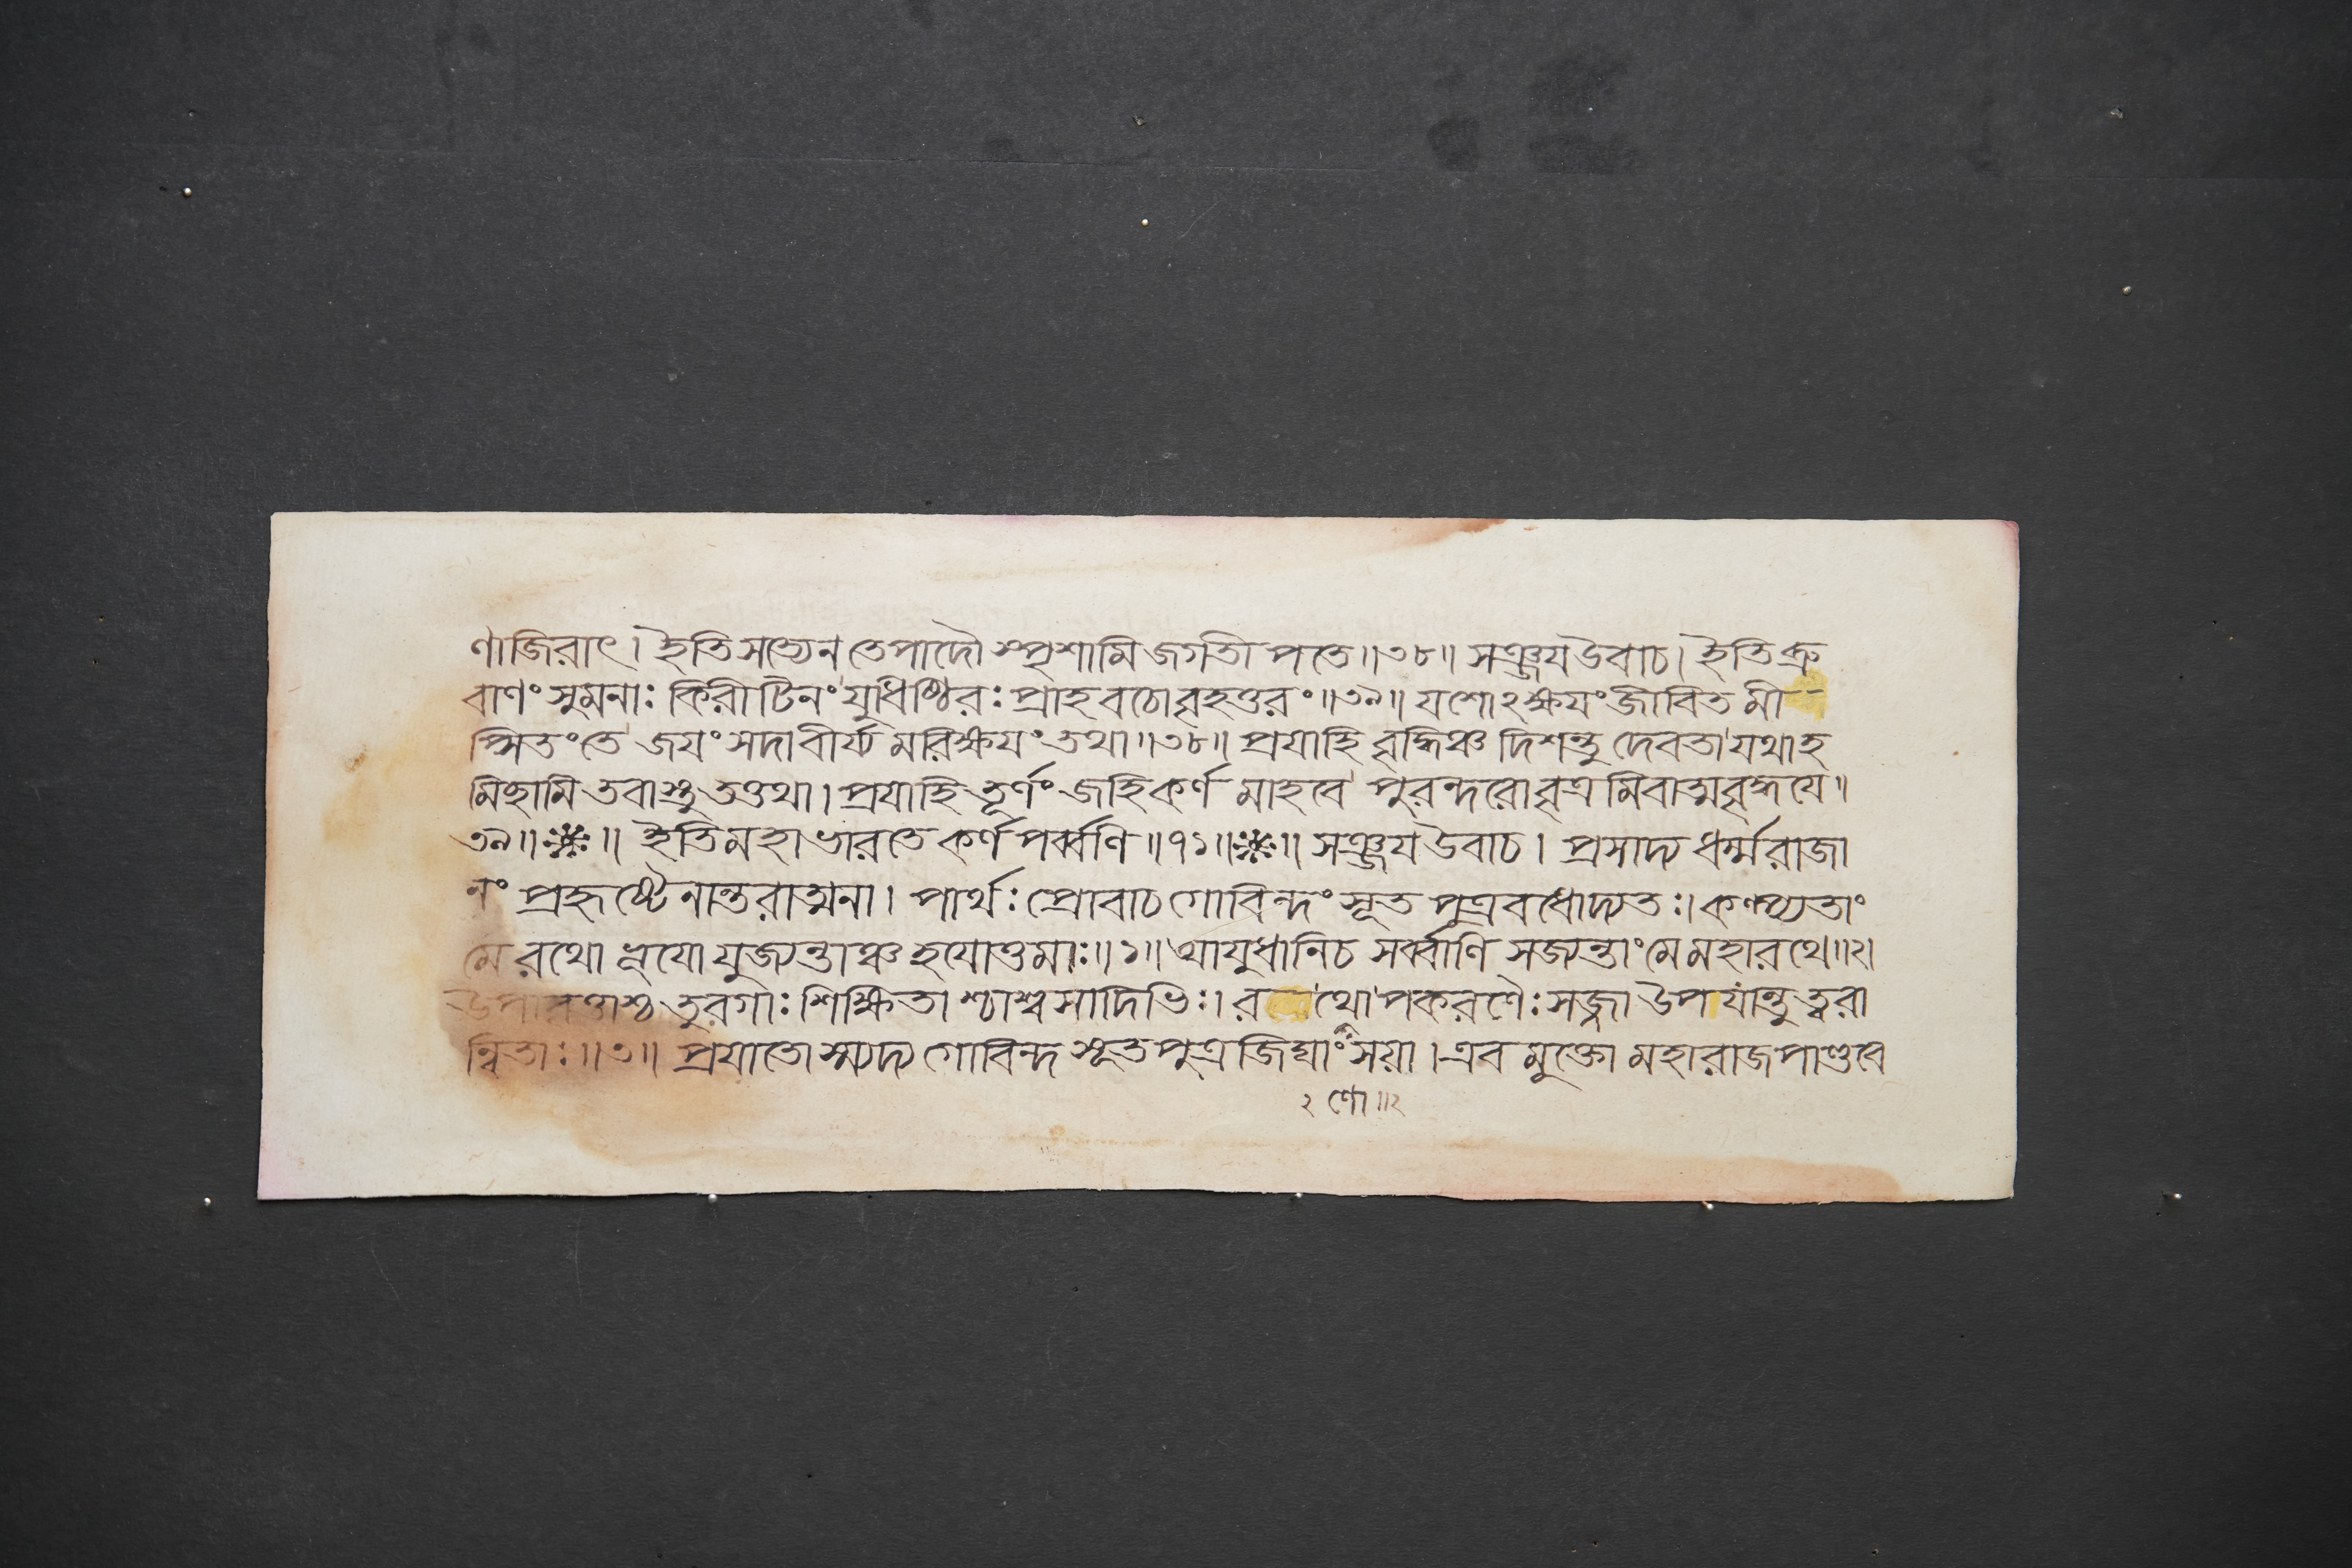 ণাজিরাৎ। ইতি সত্যেন তে পাদৌ স্পৃশামি জগতী পতে॥৩৮॥ সঞ্জয উবাচ। ইতি ব্রু
বাণং সুমনাঃ কিরীটিনং যুধিষ্ঠিরঃ প্রাহ বচো বৃহত্তরং॥৩৯॥ যশোঽক্ষযং জীবিত মী-
প্সিতং তে জযং সদা বীর্য্য মরিক্ষযং তথা॥৩৮॥ প্রযাহি বৃদ্ধিঞ্চ দিশন্তু দেবতা যথাহ
মিছামি তবাস্তু তত্তথা। প্রযাহি তূর্ণং জহি কর্ণ মাহবে পুরন্দরো বৃত্র মিবাত্মবৃদ্ধযে॥
৩৯॥ ※ ॥ ইতি মহাভারতে কর্ণ পর্ব্বণি॥৭১॥ ※ ॥ সঞ্জয উবাচ। প্রসাদ্য ধর্ম্মরাজা
নং প্রহৃষ্টেনান্তরাত্মনা। পার্থঃ প্রোবাচ গোবিন্দং সূত পুত্র বধোদ্যতঃ। কল্প্যতাং
মে রথো ভূযো যুজ্যন্তাঞ্চ হযোত্তমাঃ॥১॥ আযুধানি চ সর্ব্বাণি সজ্যন্তাং মে মহারথে॥২।
উপাবৃত্তাশ্চ তুরগাঃ শিক্ষিতা শ্চাশ্বসাদিভিঃ। র থোপকরণৈঃ সজ্জা উপ যান্তু ত্বরা
ন্বিতাঃ॥৩॥ প্রযাতো স্ম্যদ্য গোবিন্দ সূত পুত্র জিঘাংসয়া। এব মুক্তো মহারাজ পাণ্ডবে
২ ণো॥২